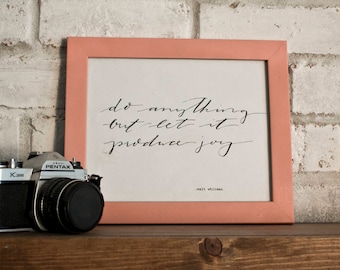 do anything
but let it
produce joy
walt whitman
PENTAX